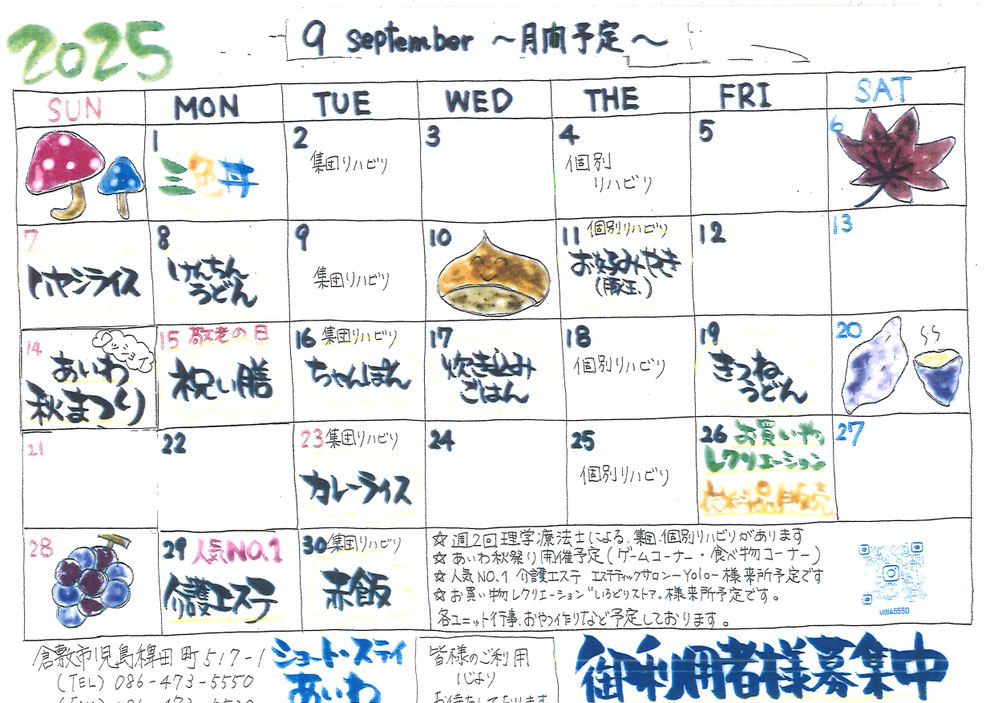 2025
9 september ～月内予定～
SUN MON TUE WED THE FRI SAT
1
三色丼
2
集団リハビリ
3
4
個別
リハビリ
5
6
7
ハヤシライス
8
けんちん
うどん
9
集団リハビリ
10
11 個別リハビリ
お好みやき
(豚玉)
12
13
14
ワッショイ
あいわ
秋まつり
15 敬老の日
祝い膳
16 集団リハビリ
ちゃんぽん
17
炊き込み
ごはん
18
個別リハビリ
19
きつね
うどん
20
21
22
23 集団リハビリ
カレーライス
24
25
個別リハビリ
26 お買いもの
レクリエーション
衣料品販売
27
28
29 人気NO.1
介護エステ
30 集団リハビリ
赤飯
☆ 週2回理学療法士による、集団、個別リハビリがあります
☆ あいわ秋祭り開催予定(ゲームコーナー・食べ物コーナー)
☆ 人気NO.1 介護エステ エステティックサロンーYoloー様来所予定です
☆ お買い物レクリエーション"いろどりストア"様来所予定です。
各ユニット行事、おやつ作りなど予定しております。
UIWA5550
倉敷市児島稗田町517-1
(TEL) 086-473-5550
ショート・ステイ
あいわ
皆様のご利用
心より
お待ちしております
御利用者様募集中